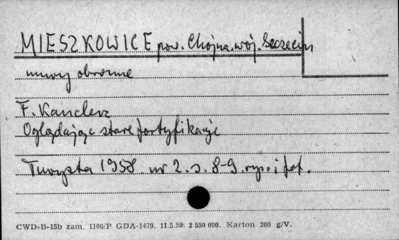 MIESZKOWICE pow. Chojna. woj. Szczecin
mury obronne
F. Kanclerz
Oglądając stare fortyfikacje
Turysta 1958. nr 2. s. 8-9. ryc. i fot.
CWD-B-15b zam. 1106/P GDA-1479. 11.5.59. 2 550 000. Karton 200 g/V.